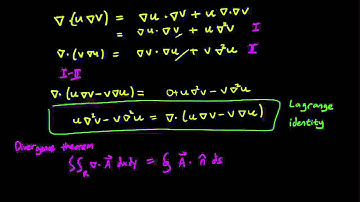 ∇·(u∇v) = ∇u·∇v + u ∇·∇v
= ∇u·∇v + u∇²v I
∇·(v∇u) = ∇v·∇u + v∇²u II
I-II
∇·(u∇v-v∇u) = 0+u∇²v-v∇²u
u∇²v-v∇²u = ∇·(u∇v-v∇u)
Lagrange
identity
Divergence theorem
∬_R ∇·A⃗ dxdy = ∮ A⃗·n̂ ds